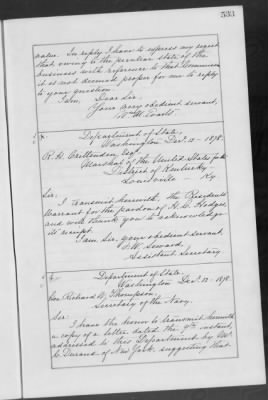 533
value. In reply I have to express my regret
that, owing to the peculiar state of the
business with reference to that Commission
it is not deemed proper for me to reply
to your question.
I am, Dear Sir,
Your very obedient servant,
Wm M. Evarts.
Department of State,
Washington Dec. 10 - 1878.
R. H. Crittenden, Esqr.
Marshal of the United States for the
District of Kentucky,
Louisville - Ky
Sir:
I transmit herewith, the President's
Warrant for the pardon of H. C. Hodges,
and will thank you to acknowledge
its receipt.
I am, Sir, your obedient servant,
F. W. Seward,
Assistant Secretary
Department of State,
Washington Dec. 10. 1878.
Hon. Richard W. Thompson,
Secretary of the Navy.
Sir:
I have the honor to transmit herewith
a copy of a letter dated the 9th instant,
addressed to this Department by
C. Durand of New York, suggesting that